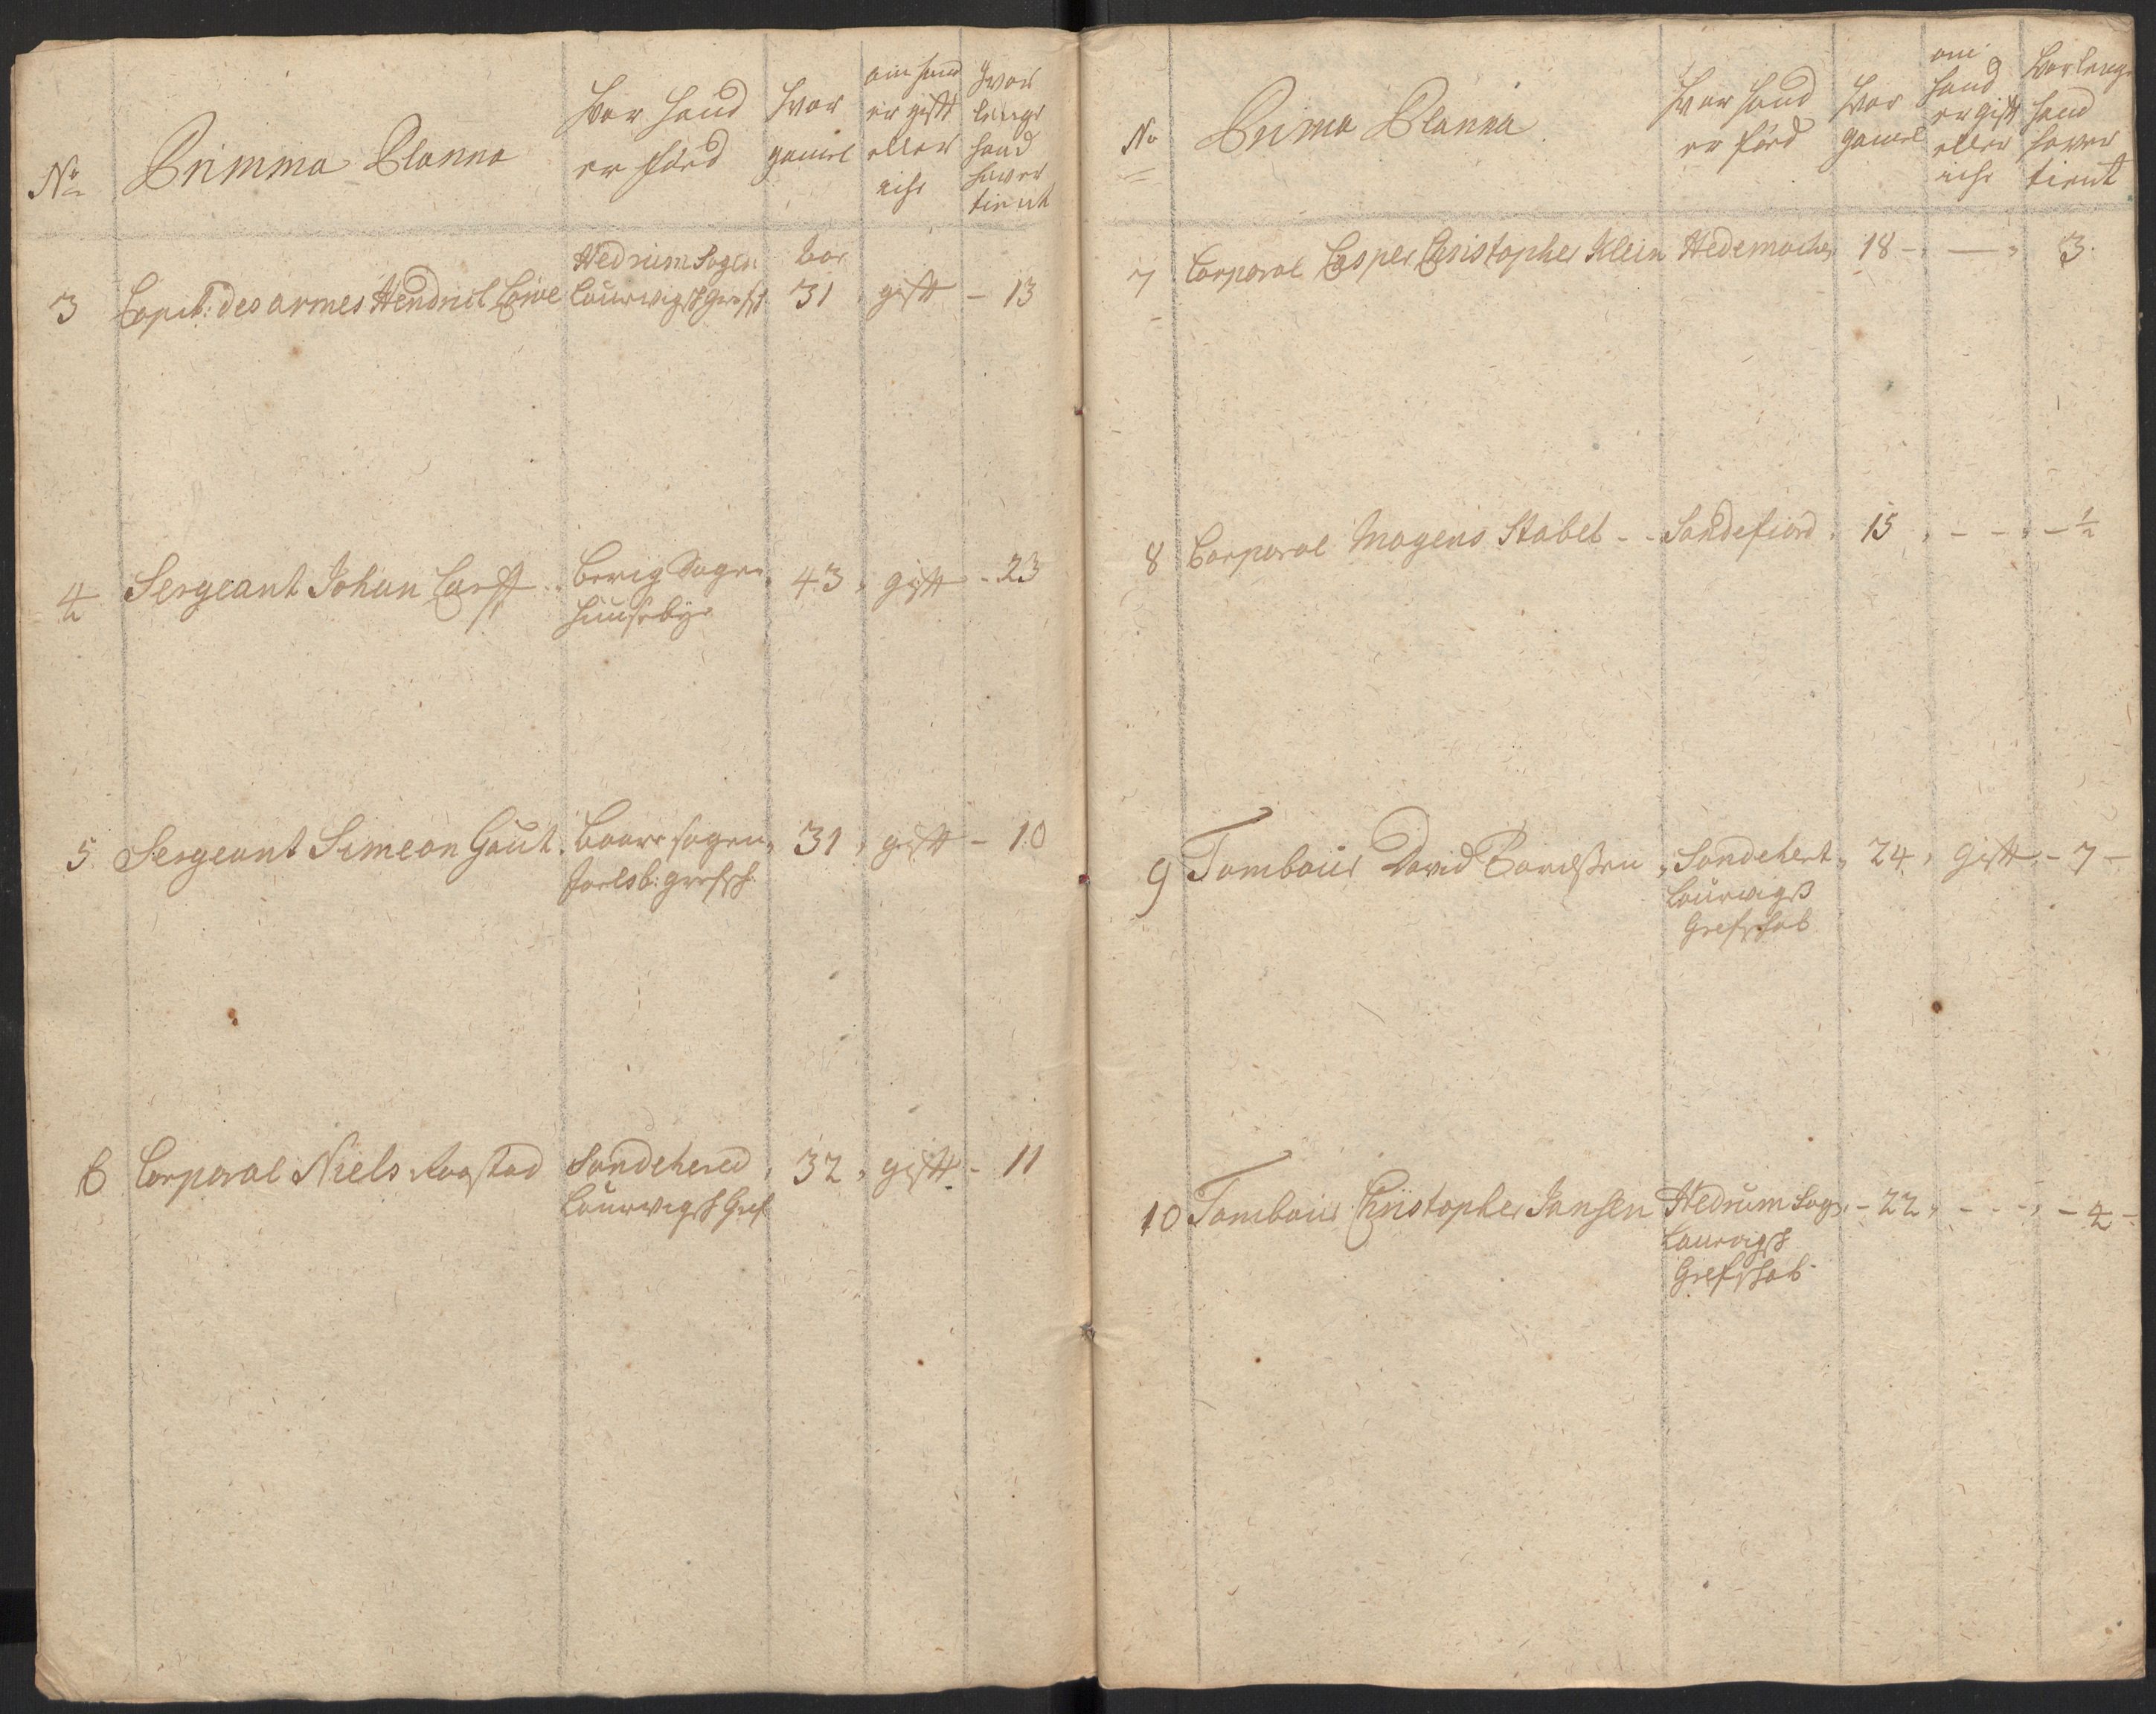 No
Primma Planna
Hvor hand
er föed
Hvor
gamel
om hand
er gift
eller
iche
Hvor
lenge
hand
hawer
tient
3 Capit: des armes Hendrich
Hedrum Sogen
Laurwigs Grefsch
31 gift - 13
4 Sergeant Johan
Sogen
Huusebye
43 gift - 23
5 Sergeant Simeon Gaut
sogen
Jarlsb: grefsch
31 gift - 10
6 Corporal Niels Rogstad
Sandehered
Laurwigsch Gref
32 gift - 11
No
Prima Planna
Hvor hand
er föed
Hvor
gamel
om
hand
er gift
eller
iche
Hvor lenge
hand
hawer
tient
7 Corporal Casper Christopher Klein Hedemarchen 18 - — 3
8 Corporal Mogens Stabel - - Sandefiord 15 - - - ½
9 Tambour David Sandehert 24 Gift - 7 -
Laurvigs
Grefschab
10 Tambour Christopher Jansen Hedrum Sogn - 22 - - - 4 -
Laurvigsch
Grefschab